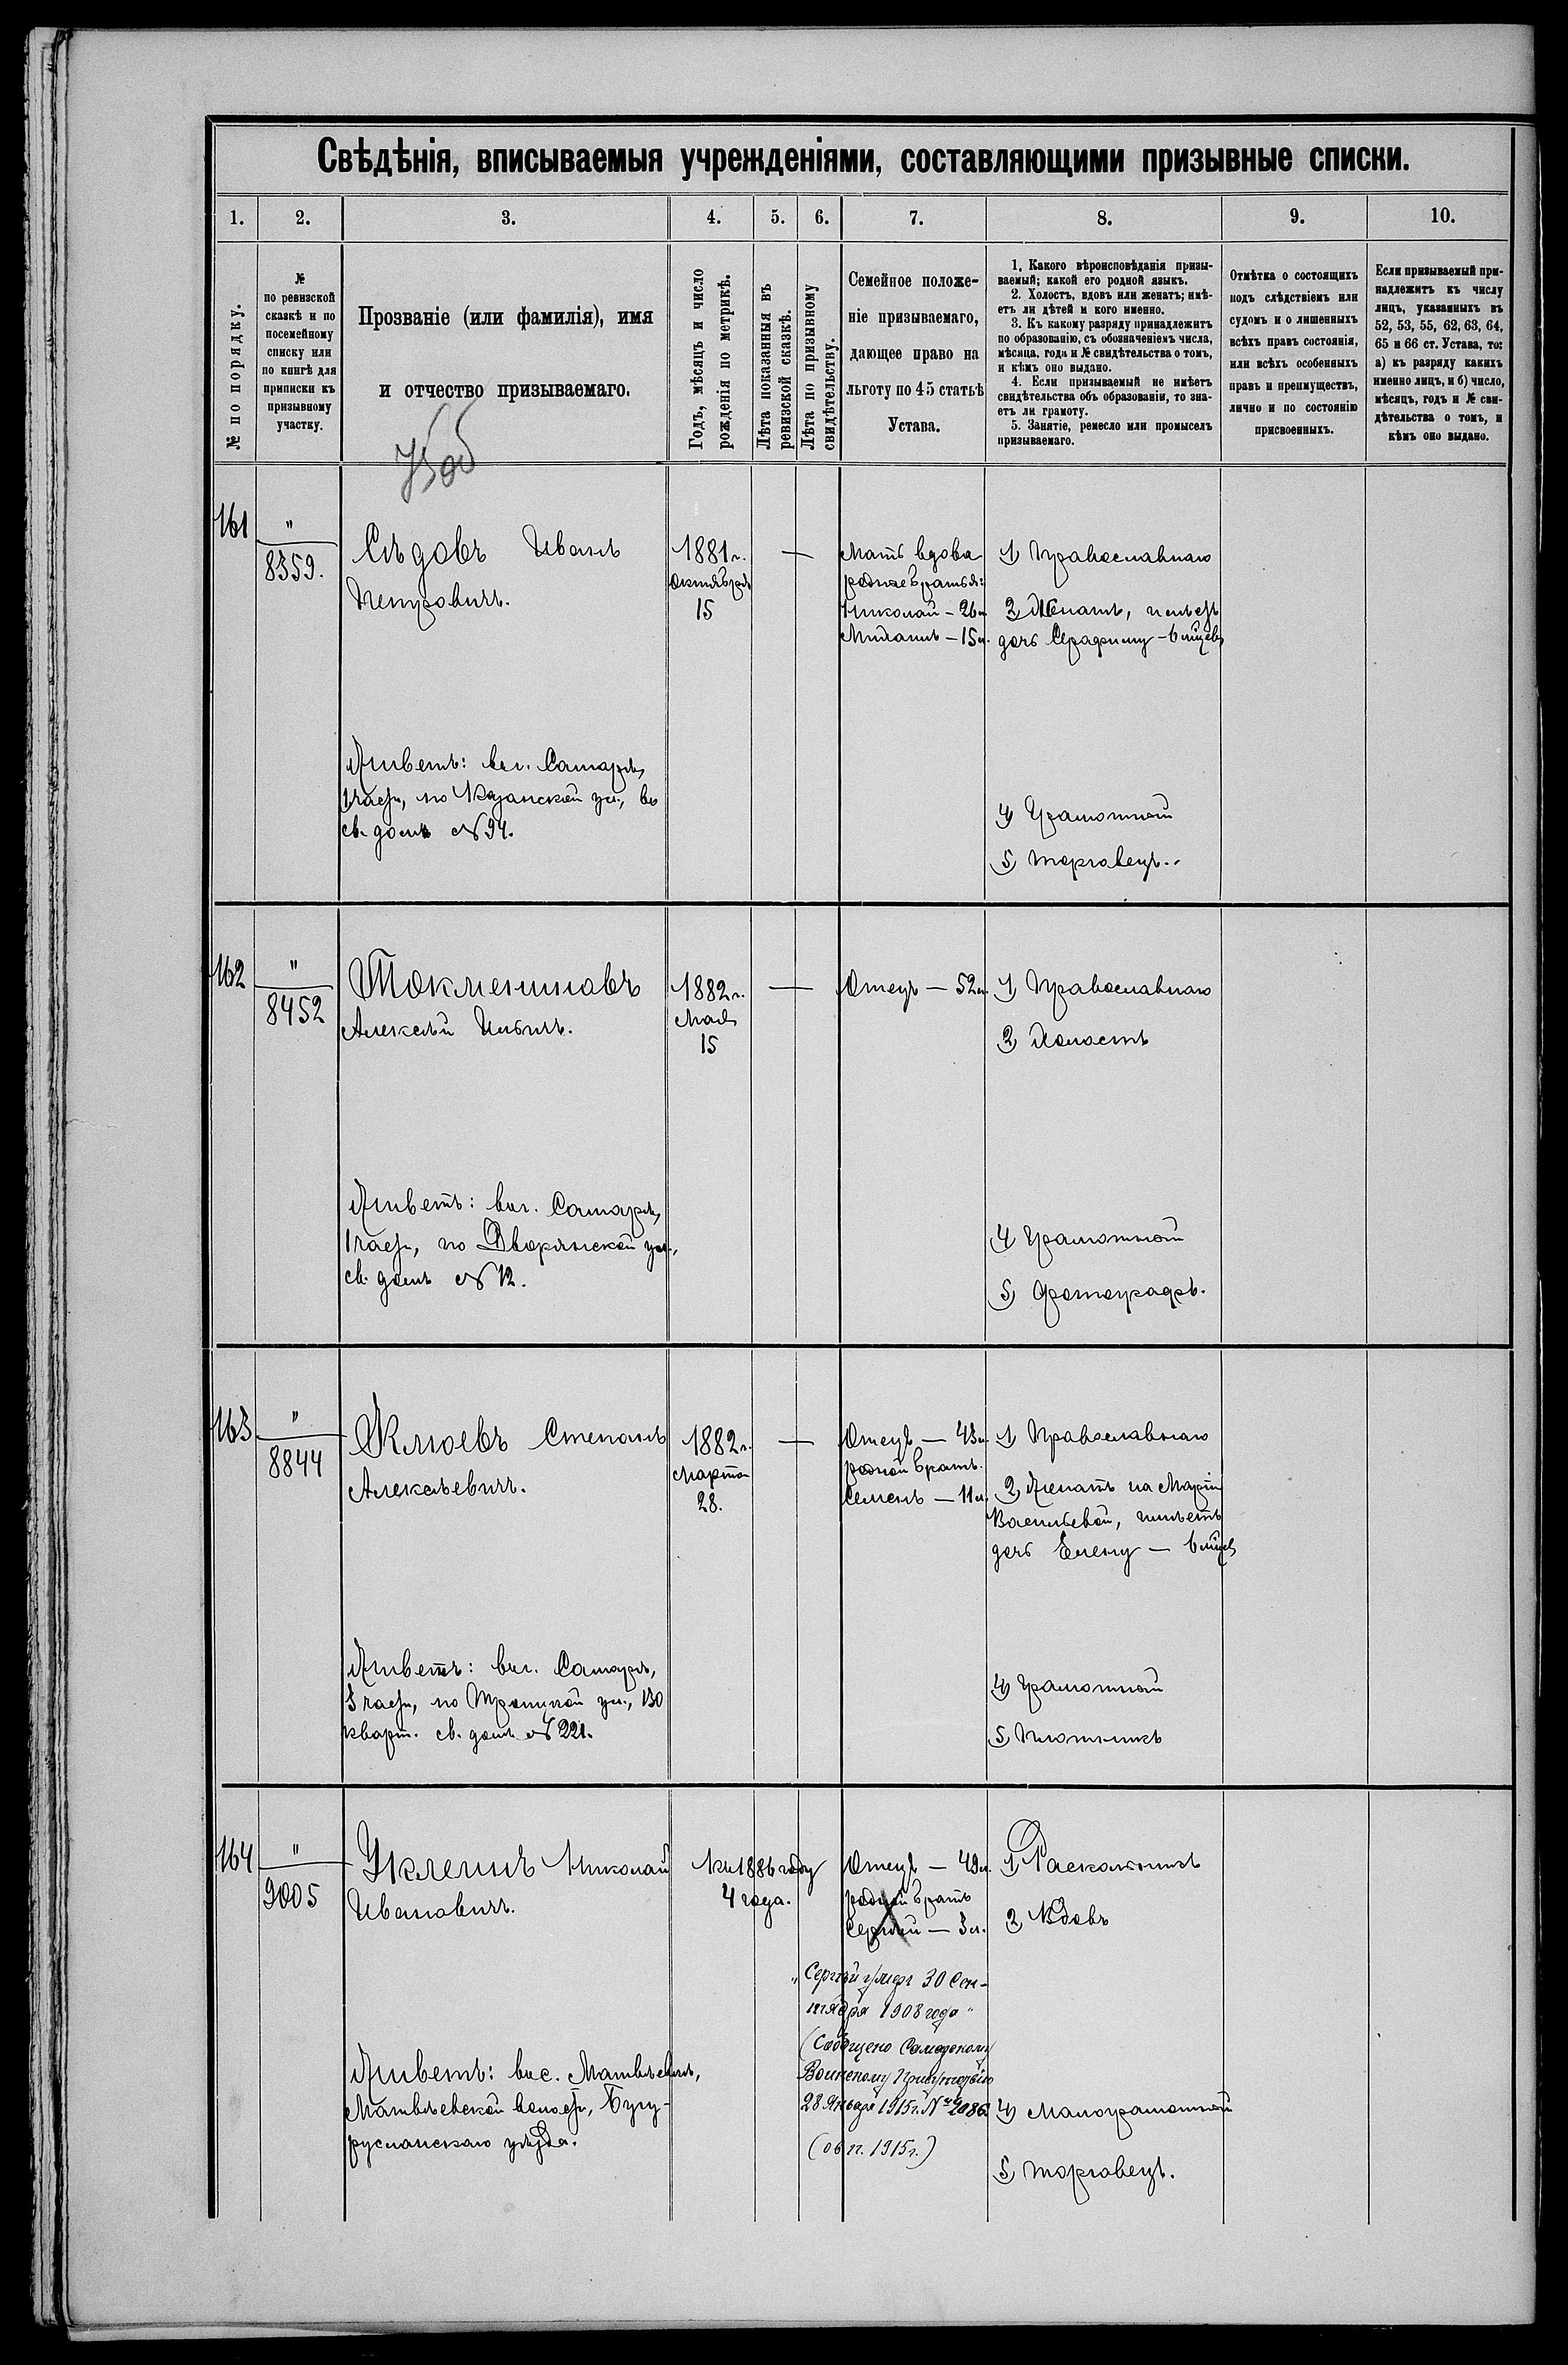 Свѣдѣнія, вписываемыя учрежденіями, составляющими призывные списки.
1. 2. 3. 4. 5. 6. 7. 8. 9. 10.
№ по порядку.
№
по ревизской
сказкѣ и по
посемейному
списку или
по книгѣ для
приписки къ
призывному
участку.
Прозваніе (или фамилія), имя
и отчество призываемаго.
Годъ, мѣсяцъ и число
рожденія по метрикѣ.
Лѣта показанныя въ
ревизской сказкѣ.
Лѣта по призывному
свидѣтельству.
Семейное положе-
ніе призываемаго,
дающее право на
льготу по 45 статьѣ
Устава.
1. Какого вѣроисповѣданія призы-
ваемый; какой его родной языкъ.
2. Холостъ, вдовъ или женатъ; имѣ-
етъ ли дѣтей и кого именно.
3. Къ какому разряду принадлежитъ
по образованію, съ обозначеніемъ числа,
мѣсяца, года и № свидѣтельства о томъ,
и кѣмъ оно выдано.
4. Если призываемый не имѣетъ
свидѣтельства объ образованіи, то зна-
етъ ли грамоту.
5. Занятіе, ремесло или промыселъ
призываемаго.
Отмѣтка о состоящихъ
подъ слѣдствіемъ или
судомъ и о лишенныхъ
всѣхъ правъ состоянія,
или всѣхъ особенныхъ
правъ и преимуществъ,
лично и по состоянію
присвоенныхъ.
Если призываемый при-
надлежитъ къ числу
лицъ, указанныхъ въ
52, 53, 55, 62, 63, 64,
65 и 66 ст. Устава, то:
а) къ разряду какихъ
именно лицъ, и б) число,
мѣсяцъ, годъ и № сви-
дѣтельства о томъ, и
кѣмъ оно выдано.
161
"
8359.
Сѣдовъ Иванъ
Петровичъ.
1881 г.
Октября
15
—
Мать вдова
родные братья:
Николай – 26 л.
Михаилъ – 15 л.
1) Православнаго
2) Женатъ, имѣетъ
дочь Серафиму – 6 мѣсяцевъ
Живетъ: въ г. Самарѣ,
1 части, по Казанской ул., въ
св. домѣ № 94.
4) Грамотный
5) Торговецъ.
162
"
8452
Токмениновъ
Алексѣй Ильичъ.
1882 г.
Мая
15
—
Отецъ – 52 л.
1) Православнаго
2) Холостъ
Живетъ: въ г. Самарѣ,
1 части, по Дворянской ул.,
св. домѣ № 12.
4) Грамотный
5) Фотографъ.
163
"
8844
Клюевъ Степанъ
Алексѣевичъ.
1882 г.
Марта
28.
—
Отецъ – 43 л.
родной братъ
Семенъ – 11 л.
1) Православнаго
2) Женатъ на Марѳѣ
Васильевой, имѣетъ
дочь Елену –
Живетъ: въ г. Самарѣ,
3 части, по Троицкой ул., 130
кварт. св. домъ № 221.
4) Грамотный
5) Плотникъ
164
"
9005
Уклеинъ Николай
Ивановичъ.
Къ 1886 году
4 года.
Отецъ – 49 л.
родной братъ
Сергѣй – 3 л.
1) Раскольникъ
2) Вдовъ
"Сергѣй умеръ 30 Сен-
тября 1908 года"
(Сообщено Самарскому
Воинскому Присутствію
28 Января 1915 г. № 2086
1915 г.)
Живетъ: въ с. Матвѣевкѣ,
Матвѣевской волости, Бугу-
русланскаго уѣзда.
4) Малограмотный
5) Торговецъ.